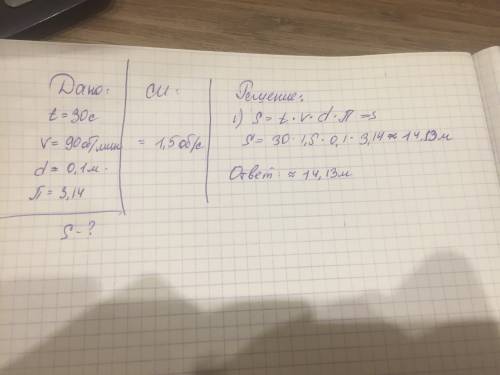 Дано:
t = 30с
v = 90об/мин
d = 0,1м.
П = 3,14
S - ?
СИ:
= 1,5об/с
Решение:
1) S = t · v · d · П ⇒
S = 30 · 1,5 · 0,1 · 3,14 ≈ 14,13м
Ответ: ≈ 14,13м